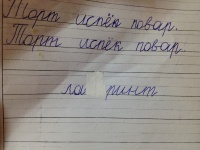 Торт испёк повар.
Торт испёк повар.
ринт